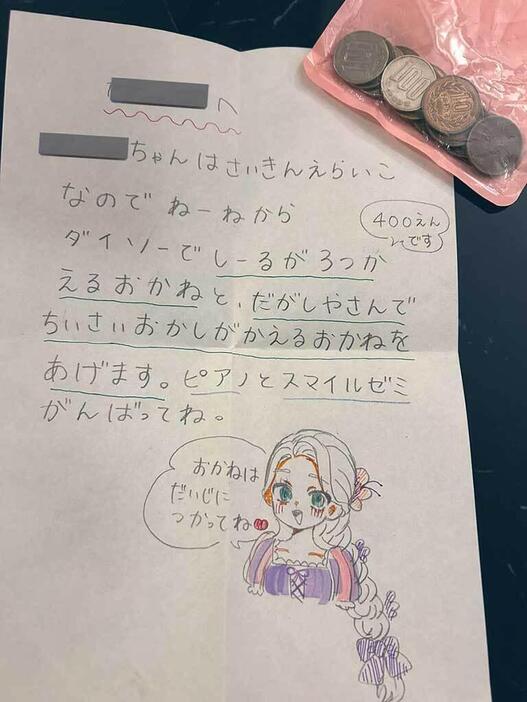 へ
ちゃんはさいきんえらいこ
なのでねーねから
ダイソーでしーるが3つか
えるおかねと、だがしやさんで
ちいさいおかしがかえるおかねを
あげます。ピアノとスマイルゼミ
がんばってね。
400えん
です
おかねは
だいじに
つかってね
100
10